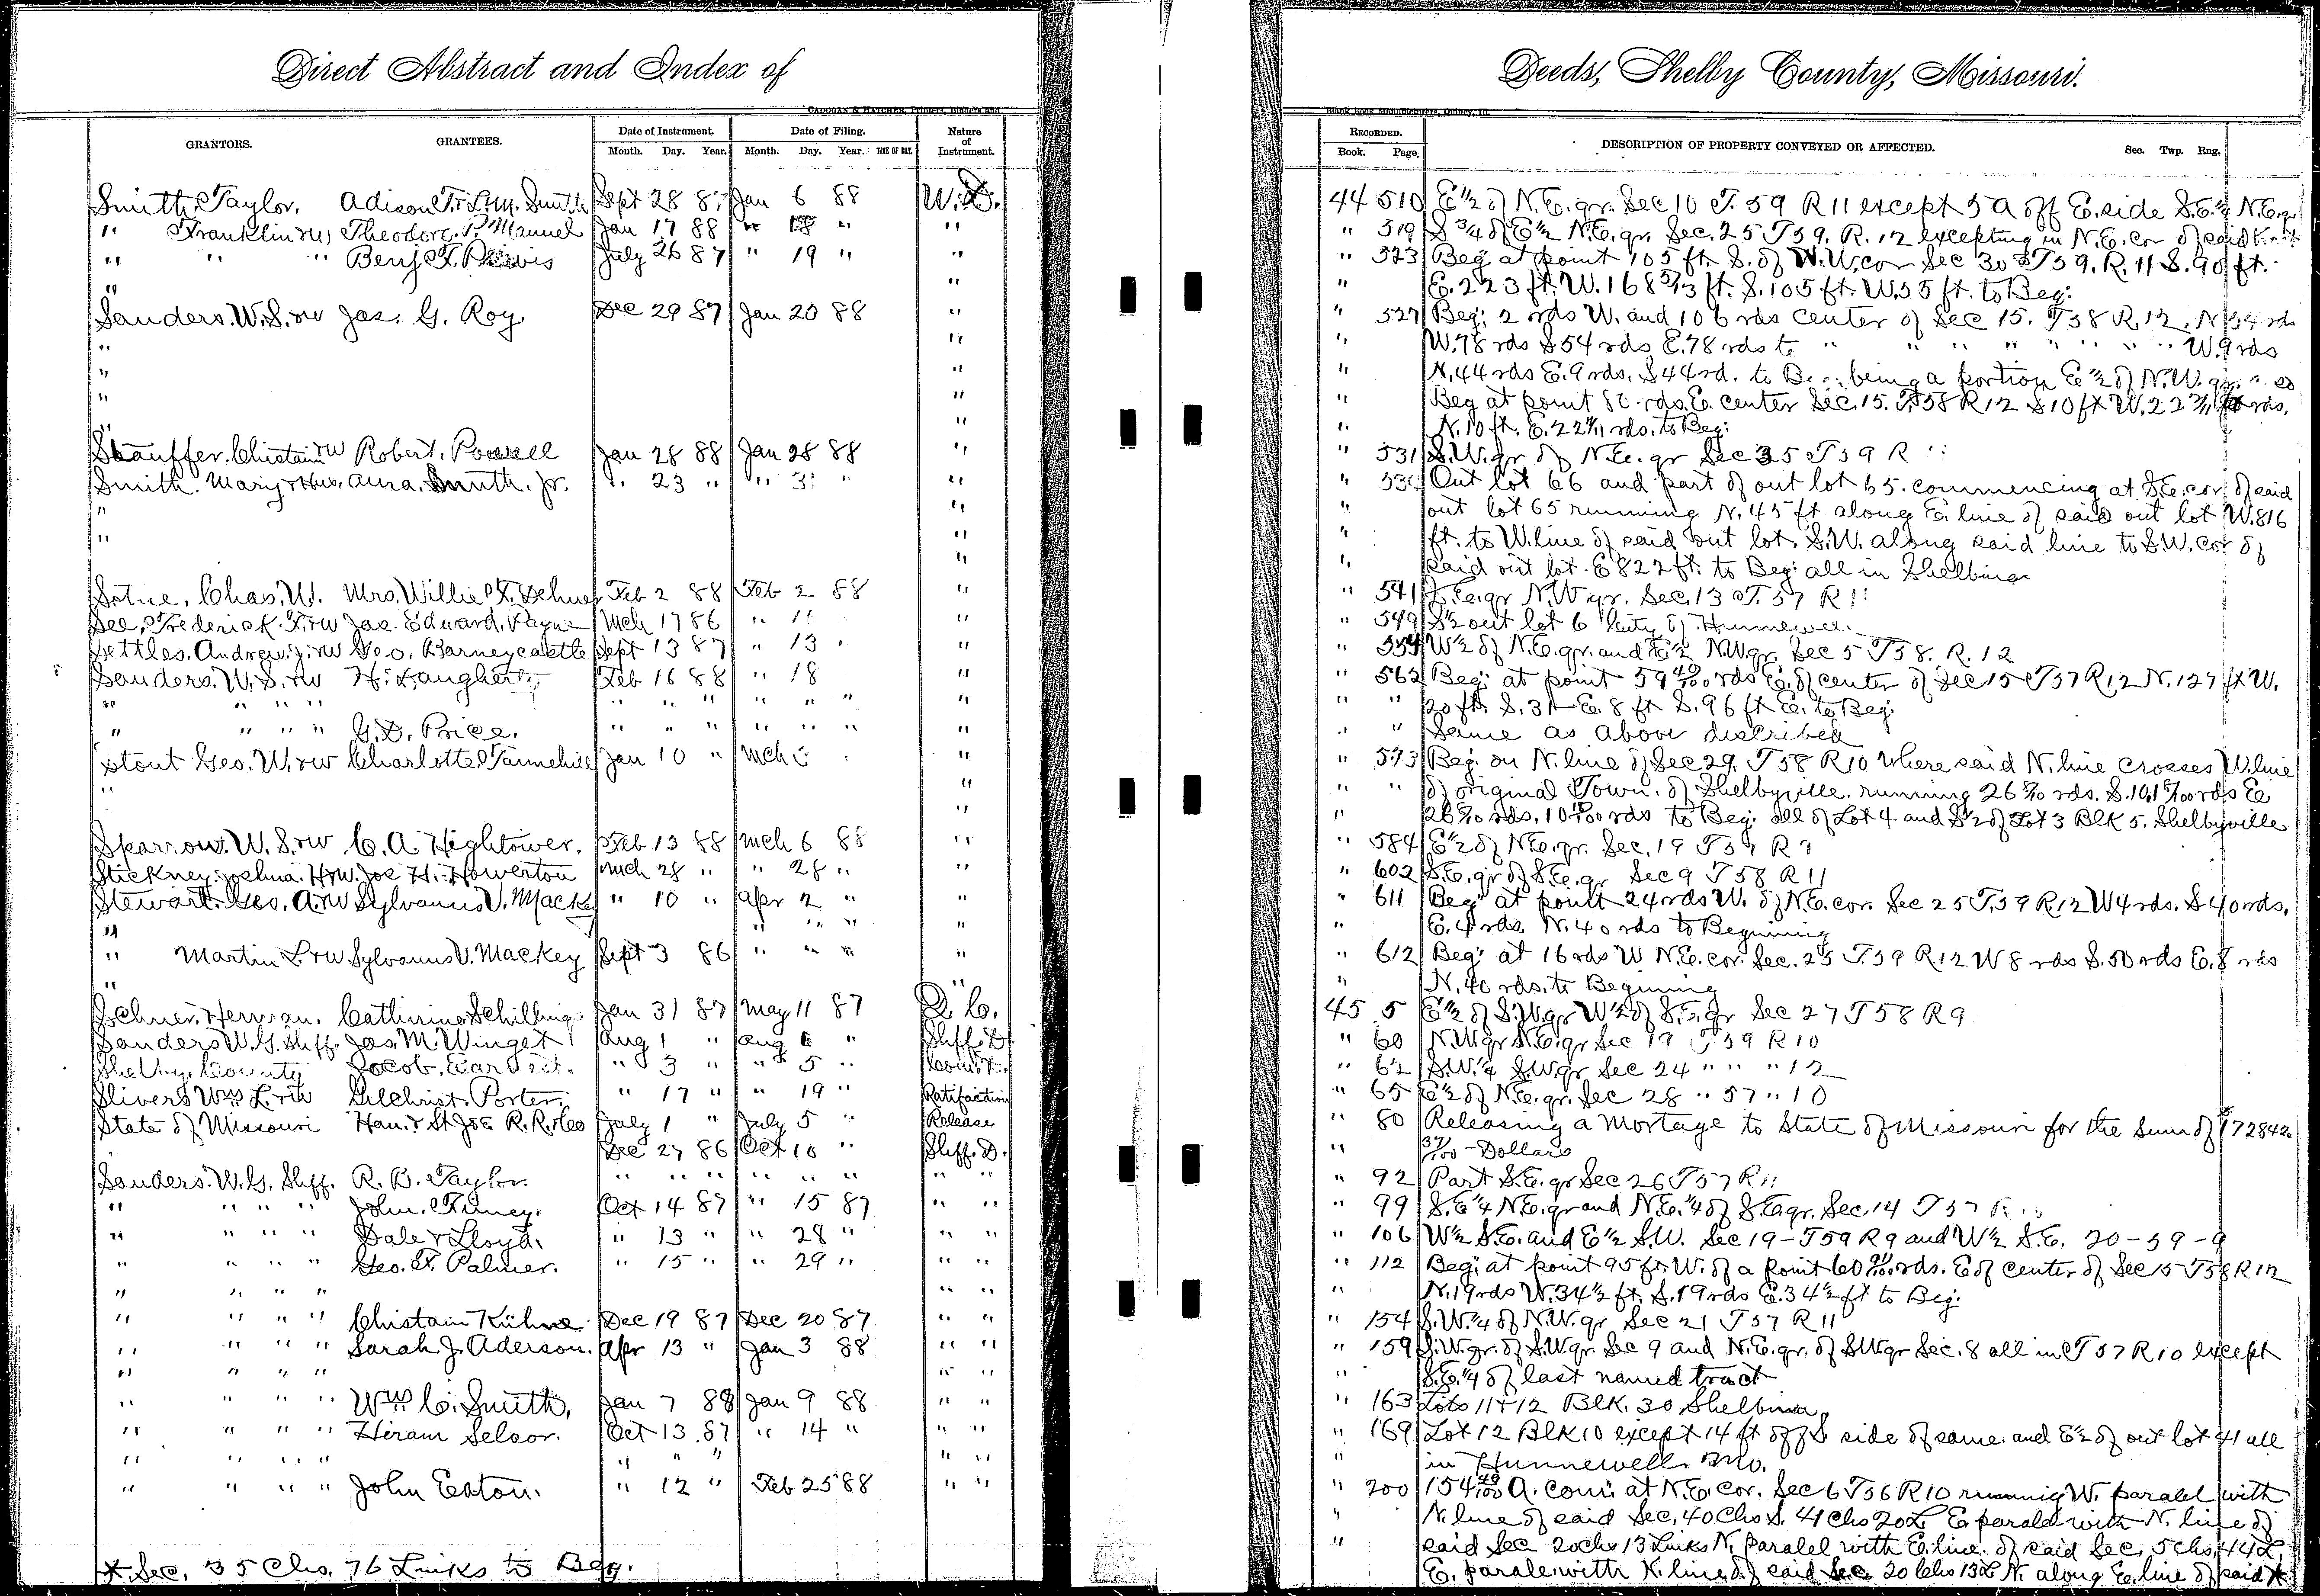 Direct Abstract and Index of
Deeds, Shelby County, Missouri.
CADOGAN & HATCHER, Printers, Binders and
Blank Book Manufacturers, Quincy, Ill.
GRANTORS. GRANTEES. Date of Instrument. Date of Filing. Nature of Instrument. RECORDED. DESCRIPTION OF PROPERTY CONVEYED OR AFFECTED. Sec. Twp. Rng.
Month. Day. Year. Month. Day. Year. TIME OF DAY. Book. Page.
Smith, Taylor. Adison T. & L.M. Smith Sept 28 87 Jan 6 88 W.D. 44 510 E 1/2 of N.E. qr. Sec 10 T. 59 R 11 except 5 A off E. side S.E. 1/4 N.E. qr
" Franklin & W, Theodore. P. Manuel Jan 17 88 " 18 " " " 519 S 3/4 of E 1/2 N.E. qr. Sec. 25 T 59. R. 12 excepting in N.E. cor of said
" " " Benj. F. July 26 87 " 19 " " " 523 Beg. at point 105 ft. S. of W.W. cor Sec 30 T 59. R. 11 S. 90 ft.
" " " E. 223 ft. W. 168 ft. S. 105 ft. W. 55 ft. to Beg.
Sanders. W.S. & W Jas. G. Roy. Dec 29 87 Jan 20 88 " " 527 Beg. 2 rds W. and 106 rds center of Sec 15. T 58 R. 12. N 54 rds
" " " W. 78 rds S 54 rds E. 78 rds to " " " " " " " " W. 9 rds
" " " N. 44 rds E. 9 rds. S 44 rd. to Be being a portion E 1/2 of N.W. qr.
" " " Beg at point 80 rds. E. center Sec. 15. T. 58 R 12 S 10 ft W. 22 rds.
" " " N. 10 ft. E. 22 rds. to Beg.
Stauffer. Chistain & W Robert. Powell Jan 28 88 Jan 28 88 " " 531 S.W. qr of N.E. qr Sec 35 T 59 R 11
Smith. Mary & Hus. Aura. Smith. Jr. " 23 " " 31 " " " Out lot 66 and part of out lot 65. commencing at S.E. cor of said
" " " out lot 65 running N. 45 ft along E. line of said out lot W. 816
" " " ft. to W. line of said out lot. S.W. along said line to S.W. cor of
" " said out lot E 822 ft. to Beg. all in Shelbina
Chas. W. Mrs. Willie Feb 2 88 Feb 2 88 " " 541 S.E. qr N.W. qr. Sec. 13 T. 57 R 11
See, Frederick. F. & W Jas. Edward. Payne Mch 17 86 " 16 " " 549 S 1/2 out lot 6 City of Hunnewell
Settles. Andrew. J. & W Geo. Barneycastle Sept 13 87 " 13 " " 554 W 1/2 of N.E. qr. and E 1/2 N.W. qr. Sec 5 T 58. R. 12
Sanders. W.S. & W H. Daugherty Feb 16 88 " 18 " " 562 Beg. at point 59 40/100 rds E. of center of Sec 15 T 57 R. 12 N. 127 ft W.
" " " " " " " " " " " " " 20 ft. S. 31 E. 8 ft S. 96 ft E. to Beg.
" " " " G.D. Price. " " " " " " " " " Same as above described
Stout Geo. W. & W Charlotte. Tannehill Jan 10 " Mch 3 " " 573 Beg. on N. line of Sec 29. T 58 R 10 where said N. line crosses W. line
" " " " of original Town. of Shelbyville. running 26 rds. S. 10 rds E
" " 26 rds. 10 rds to Beg. all of Lot 4 and S 1/2 of Lot 3 Blk 5. Shelbyville
Sparrow. W.S. & W C.A. Hightower. Feb 13 88 Mch 6 88 " " 584 E 1/2 of N.E. qr. Sec. 19 T 59 R 9
Stickney. Joshua. H & W. Joe H. Howerton Mch 28 " " 28 " " " 602 S.E. qr of S.E. qr Sec 9 T 58 R 11
Stewart. Geo. A. & W Sylvanus V. Mackey " 10 " Apr 2 " " " 611 Beg. at point 24 rds W. of N.E. cor. Sec 25 T. 59 R. 12 W 4 rds. S 40 rds.
" " " " " " E. 4 rds. N. 40 rds to Beginning
" Martin L. & W Sylvanus V. Mackey Sept 3 86 " " " " " 612 Beg. at 16 rds W N.E. cor. Sec. 25 T. 59 R. 12 W 8 rds S. 50 rds E. 8 rds
" " " N. 40 rds. to Beginning
Schner, Herman. Cathrina Schillings Jan 31 87 May 11 87 Q.C. 45 5 E 1/2 of S.W. qr W 1/2 of S.E. qr Sec 27 T 58 R 9
Sanders W.G. Shff. Jas. M. Winget Aug 1 " Aug 1 " Shff. D " 60 N.W. qr N.E. qr Sec 19 T 59 R 10
Shelby. County Jacob. " 3 " " 5 " " 62 S.W. 1/4 S.W. qr Sec 24 " " " 12
Slivers Wm L. & W Gilchrist. Porter. " 17 " " 19 " Ratifaction " 65 E 1/2 of N.E. qr. Sec 28 " 57 " 10
State of Missouri Han. & St Joe R.R. Co July 1 " July 5 " Release " 80 Releasing a Mortage to State of Missouri for the Sum of $172842.
Dec 27 86 Oct 10 " Shff. D. " 37/100 - Dollars
Sanders. W.G. Shff. R.B. Taylor. " " " " " " " " " 92 Part S.E. qr Sec 26 T 57 R 11
" " " " John. Oct 14 87 " 15 87 " " " 99 S.E 1/4 N.E. qr and N.E. 1/4 of S.E. qr. Sec. 14 T 57 R
" " " " Dale & Lloyd. " 13 " " 28 " " " " 106 W 1/2 S.E. and E 1/2 S.W. Sec 19 - T 59 R 9 and W 1/2 S.E. 20 - 59 - 9
" " " " Geo. F. Palmer. " 15 " " 29 " " " " 112 Beg. at point 95 ft. W. of a point 60 rds. E of center of Sec 15 T 58 R 12
" " " " " " " N. 19 rds W. 34 1/2 ft. S. 19 rds E. 34 1/2 ft to Beg.
" " " " Chistain Kühne Dec 19 87 Dec 20 87 " " " 154 S.W. 1/4 of N.W. qr Sec 21 T 57 R 11
" " " " Sarah J. Aderson. Apr 13 " Jan 3 88 " " " 159 S.W. qr. of S.W. qr. Sec 9 and N.E. qr. of S.W qr Sec. 8 all in T 57 R 10 except
" " " " " " " S.E. 1/4 of last named tract
" " " " Wm C. Smith, Jan 7 88 Jan 9 88 " " " 163 Lots 11 & 12 Blk. 30 Shelbina
" " " " Hiram Selsor. Oct 13. 87 " 14 " " " " 169 Lot 12 Blk 10 except 14 ft off S side of same. and E 1/2 of out lot 41 all
" " " " " " " " " in Hunnewell. Mo.
" " " " John Eaton. " 12 " Feb 25 88 " " " 200 154 40/100 A. com. at N.E. cor. Sec 6 T 56 R 10 runnig W. paralel with
" N. line of said Sec. 40 Chs S. 41 Chs 20 L E. paralel with N. line of
" said Sec 20 chs 13 Links N. paralel with E. line. of said Sec. 5 Chs. 44 L.
E. paralel with N. line of said Sec. 20 Chs 13 L N. along E. line of said *
* Sec. 35 Chs. 76 Links to Beg.